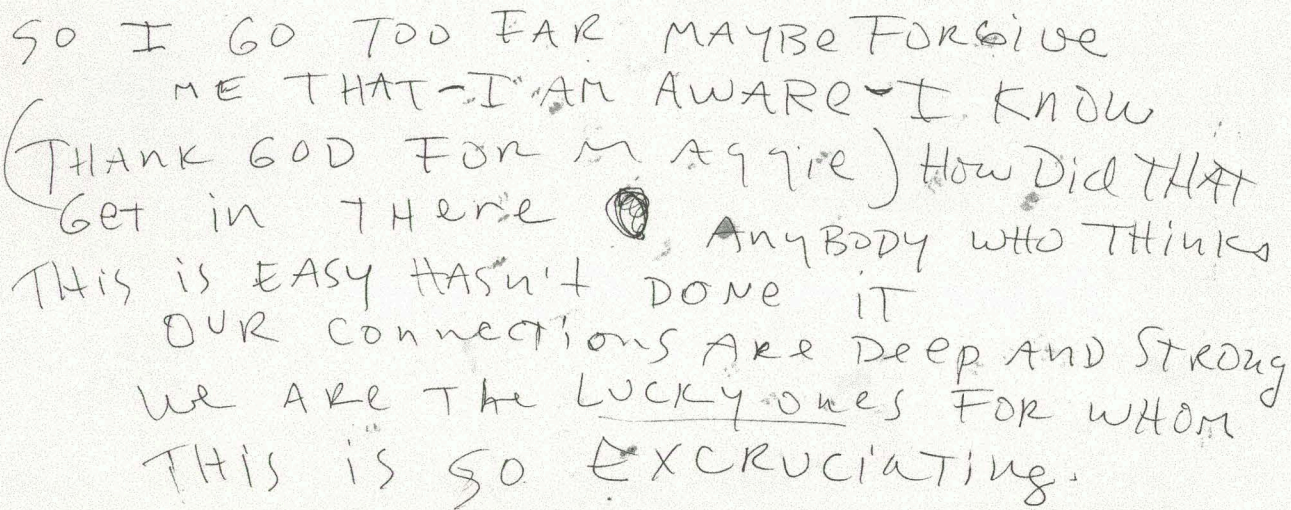 SO I GO TOO FAR MAYBe FORGive
ME THAT-I AM AWARe-I KnOW
(THAnK GOD FOR MAggie) How Did THAT
Get in THere AnyBODY WHO THinks
THis is EASy HASn't DONe iT
OUR connecTions ARe Deep AND STRONg
We ARe The LUCKy ones FOR WHOM
THis is SO EXCRUCiaTing.